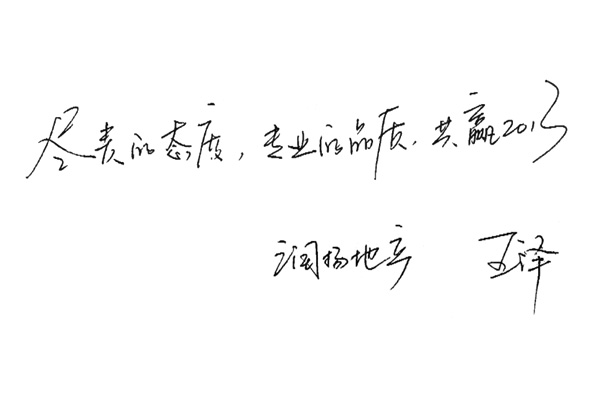 尽美的态度,专业的品质,共赢2013
润扬地产 王泽